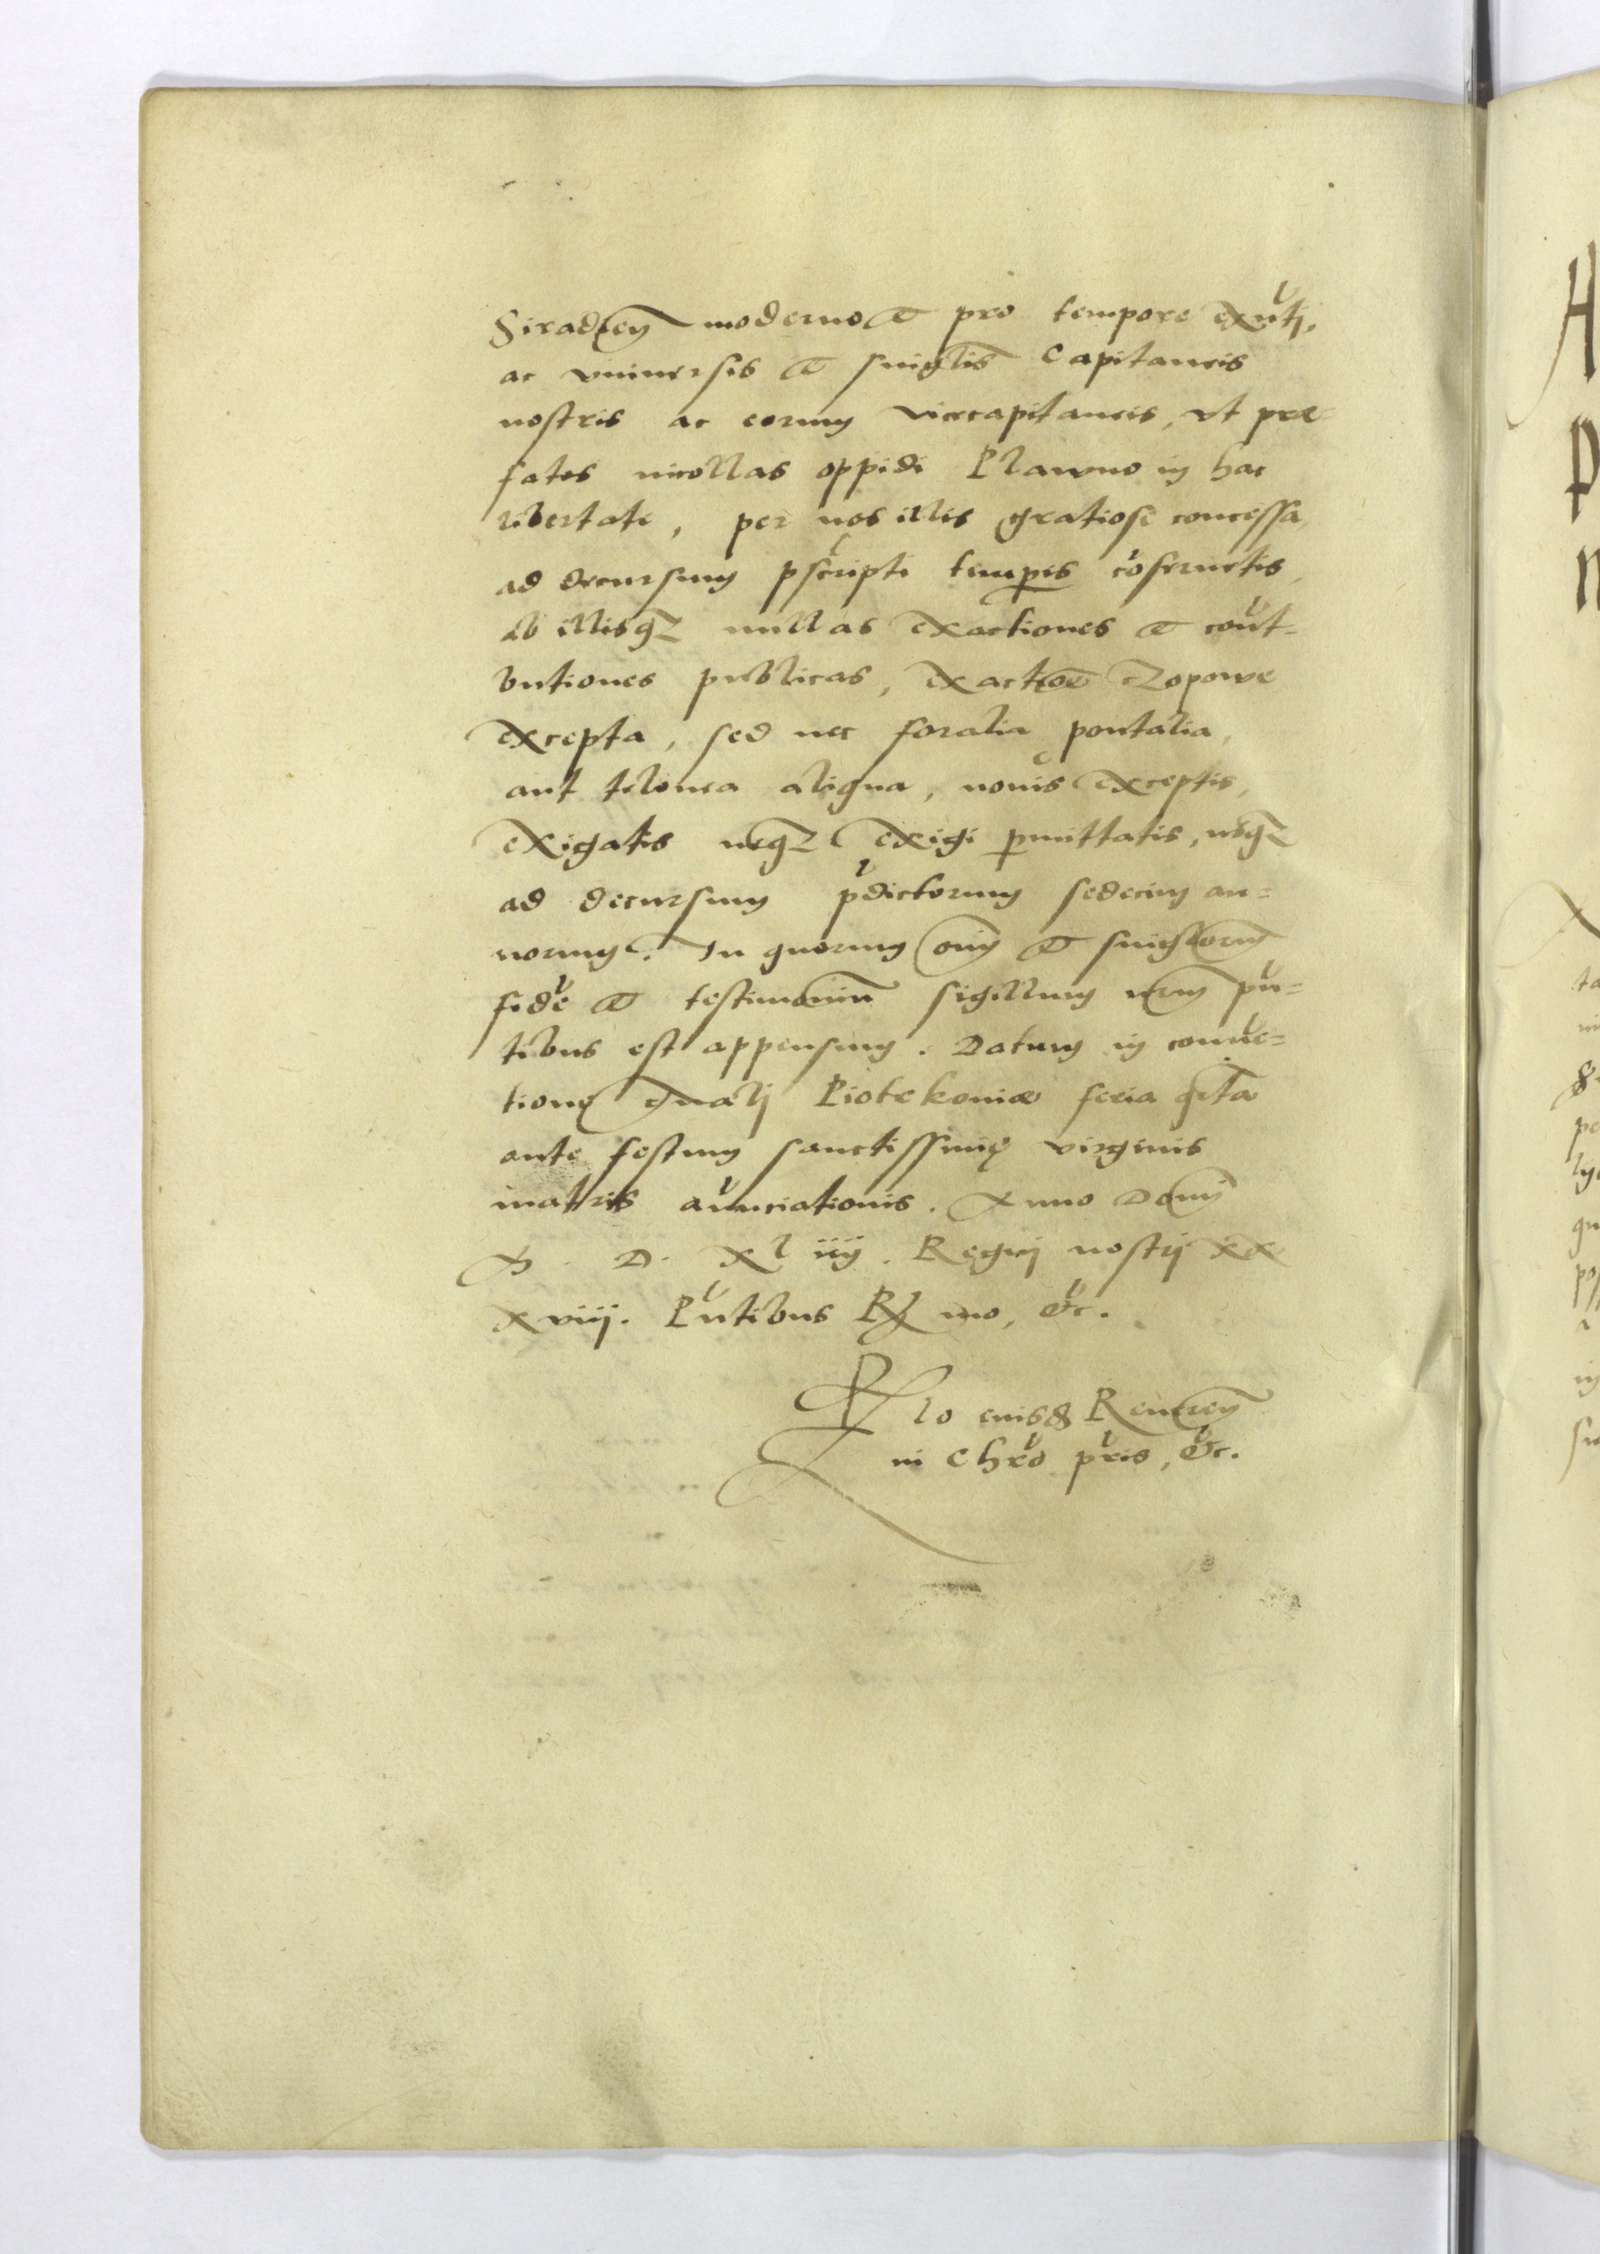 Siradien moderno et pro tempore exnti,
ac vniuersis et singlis Capitaneis
nostris ac eorum vicecapitaneis, vt præ-
fatos incollas oppidi Plawno in hac
libertate, per nos illis gratiose concessa,
ad decursum pscripti temporis coseruetis,
Ab illisq3 nullas exactiones et cont-
butiones publicas, exactioe Czopowe
excepta, sed nec foralia pontalia,
aut telonea aliqua, nouis exceptis,
exigatis neq3 exigi pmittatis, vsq3
ad decursum pdictorum sedecim an-
norum. In quorum oim et singlorum
fide et testimonium sigillum nrum pn-
tibus est appensum. Datum in conue-
tione gnali Piotrkouiæ feria qrta
ante festum sanctissimę virginis
matris anunciationis. Anno Domi
M. D. Xl iiij. Regni nostri XX
Xviij. Pntibus R mo, etc.
Rlo eiusd Reueren
in Chro pris, etc.